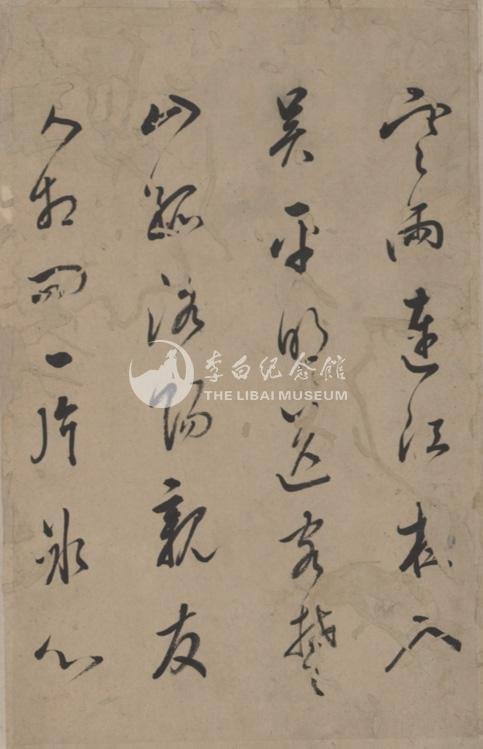 寒雨連江夜入
吳平明送客楚
山孤洛陽親友
如相問一片冰心
李白紀念館
THE LIBAI MUSEUM